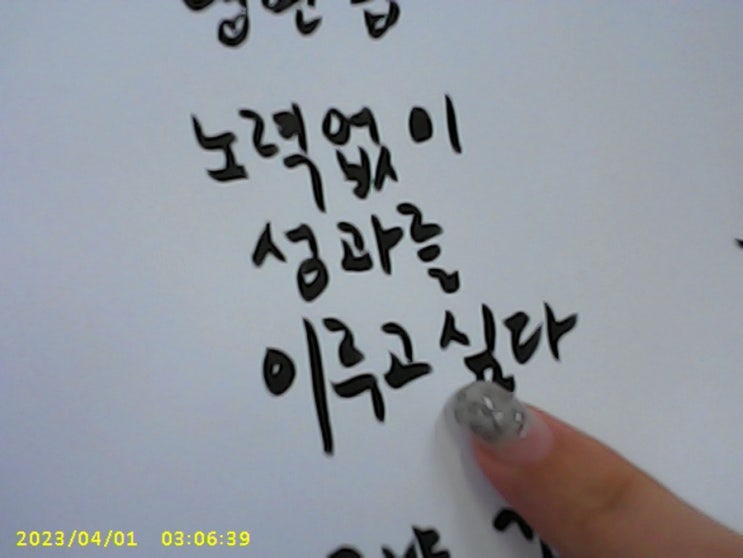 노력없이
성과를
이루고싶다
2023/04/01 03:06:39